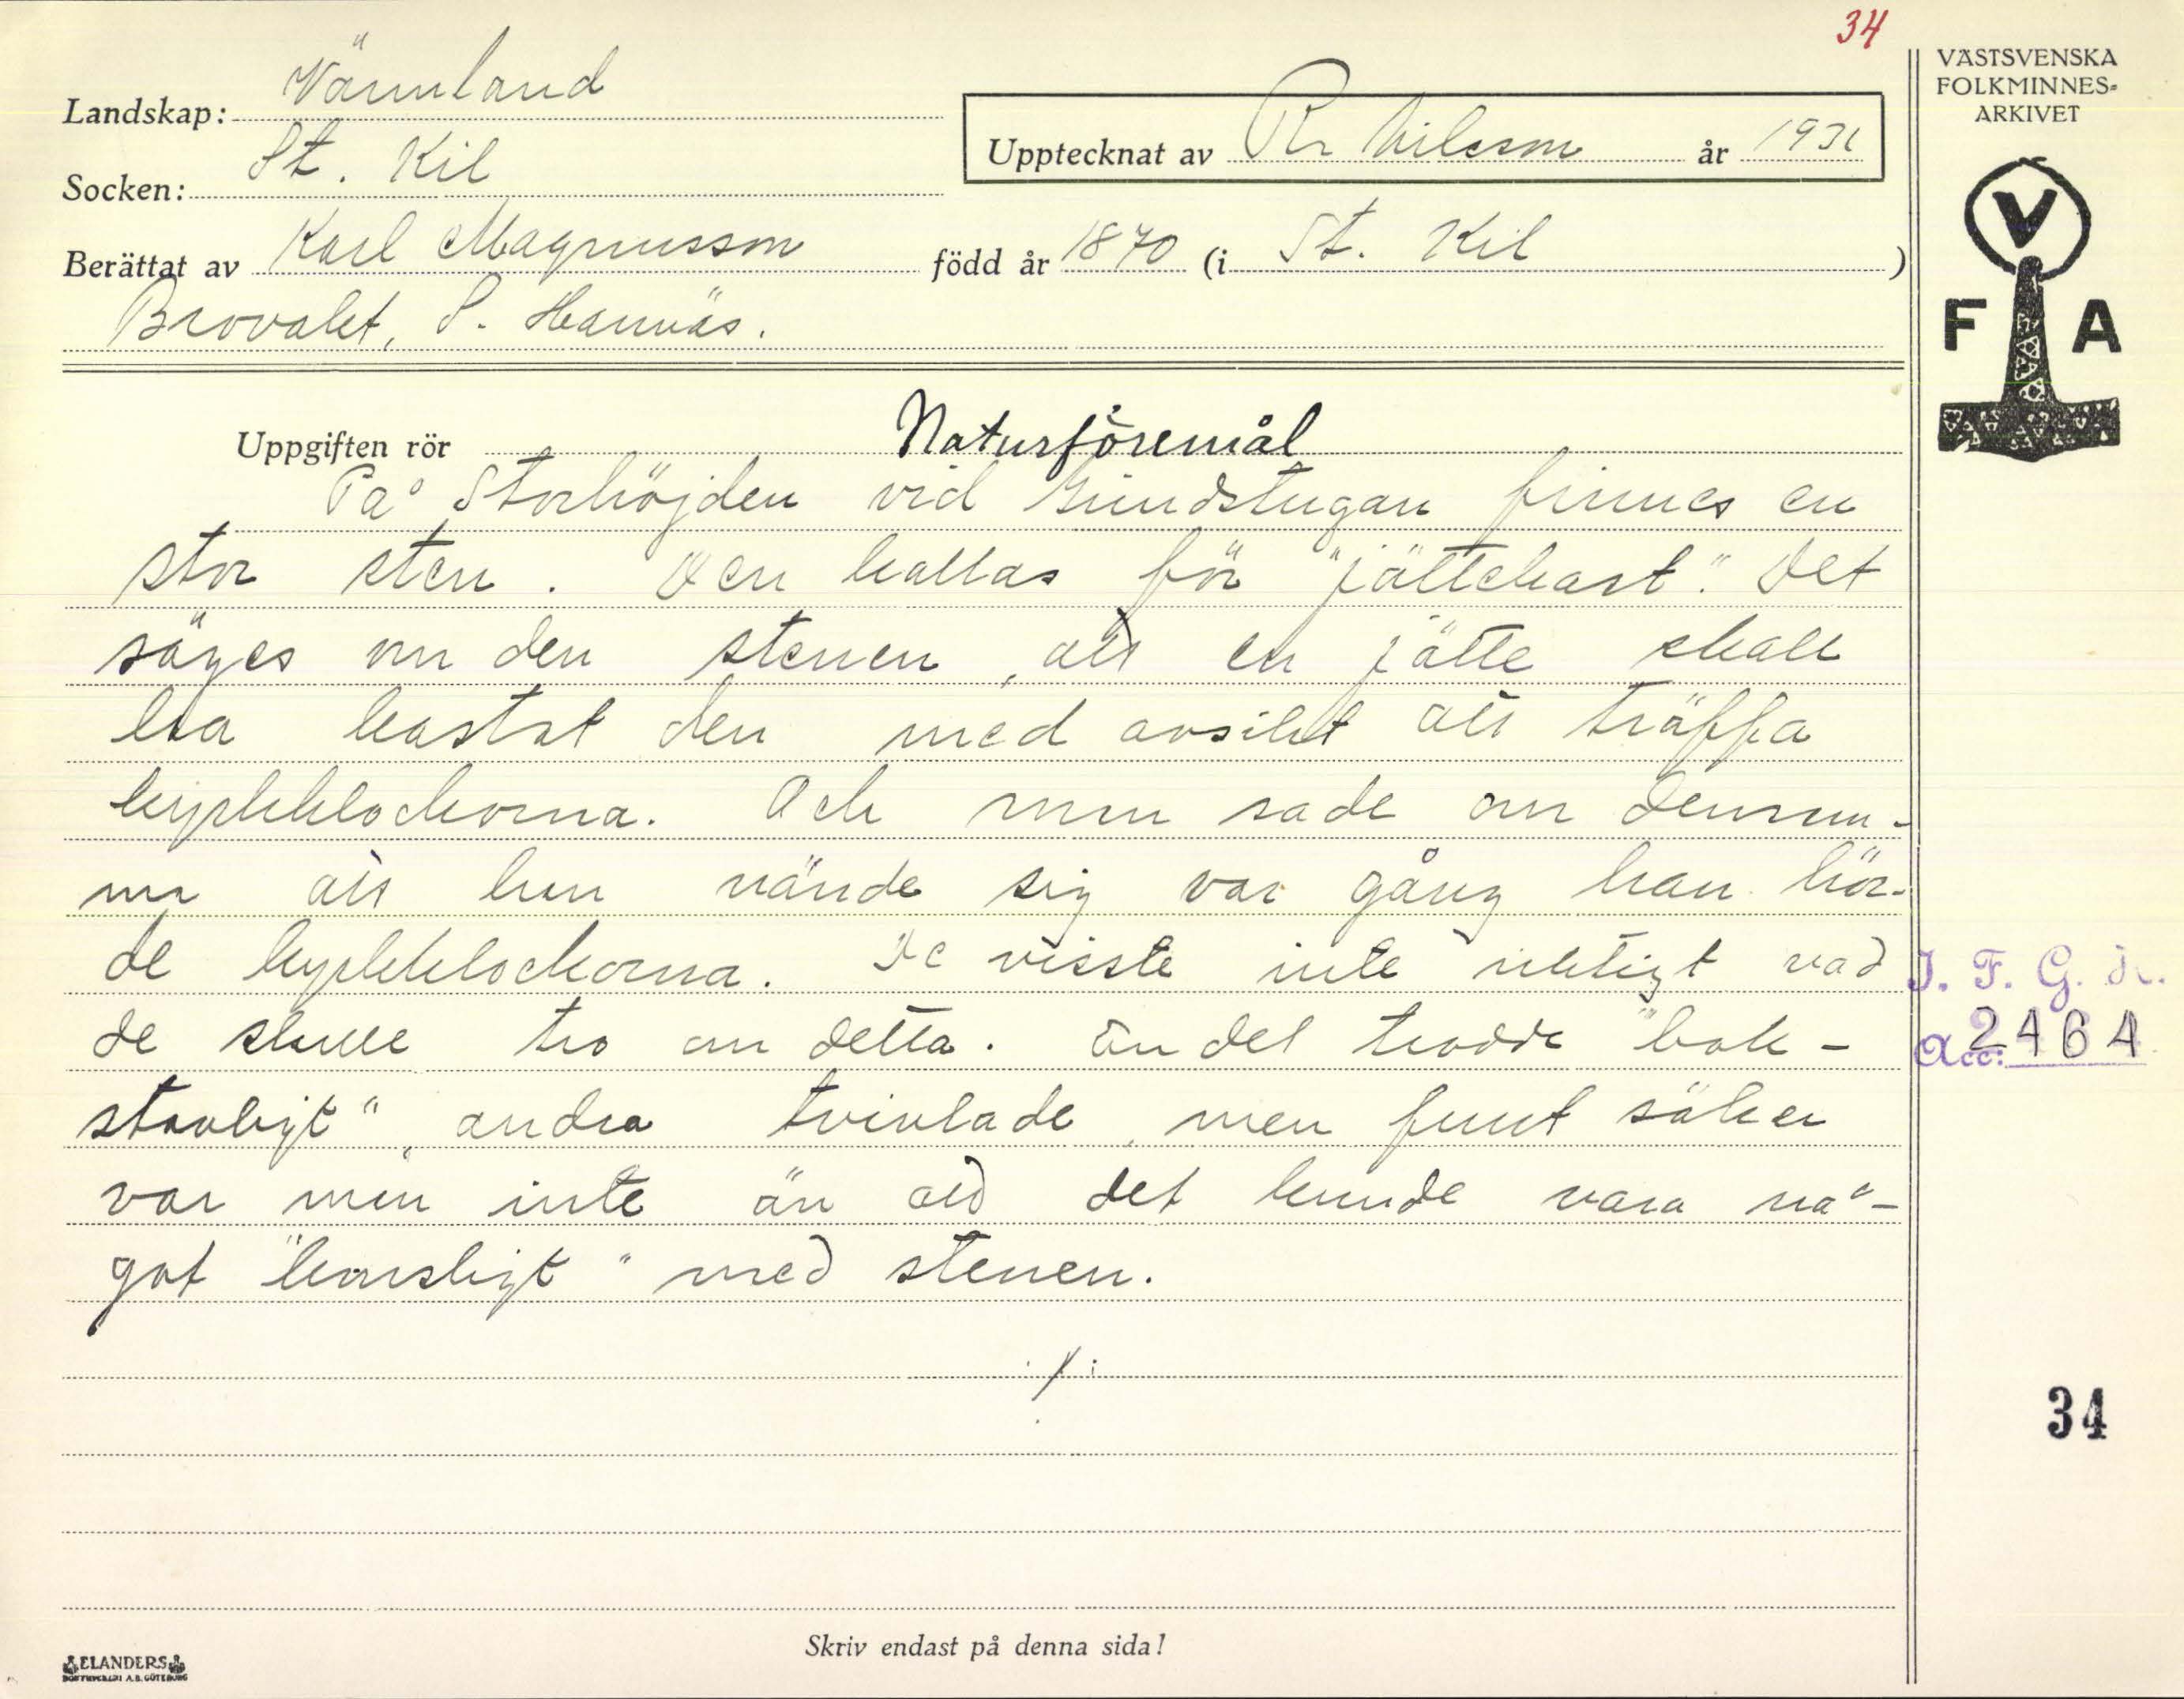 34
Landskap: Värmland
Socken: St. Kil
Upptecknat av Rr Nilsson år 1931
Berättat av Karl Magnusson född år 1870 (i St. Kil )
Brovalet, S. Hannäs.
VÄSTSVENSKA
FOLKMINNES-
ARKIVET
V
F A
Uppgiften rör Naturföremål
På Storhöjden vid Grindstugan finnes en
stor sten. Den kallas för "jättekast". Det
säges om den stenen, att en jätte skall
ha kastat den med avsikt att träffa
kyrkklockorna. Och man sade om densam-
ma att han vände sig var gång han hör-
de kyrkklockorna. De visste inte riktigt vad
de skulle tro om detta. En del trodde "bok-
stavligt", andra tvivlade, men fullt säker
var man inte än att det kunde vara nå-
got "konstigt" med stenen.
I. F. G. H.
Acc: 2464
34
Skriv endast på denna sida!
ELANDERS
BOKTRYCKERI A.B. GÖTEBORG